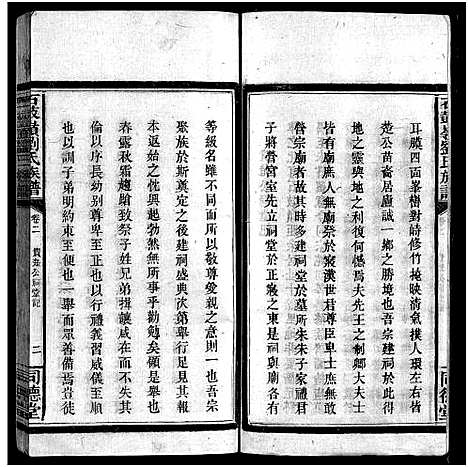 石鼓嶺劉氏族譜
耳膜四面峯巒對譎修竹掩映清氣撲人環左右皆
楚公苗裔居廬誠一鄉之勝境也創祠於此而得
地之靈與地之利復何憾焉夫先王之制卿大夫士
皆有廟庶人無廟祭於寢漢世君尊臣卑士庶無敢
有立廟者故其時多建祠堂於墓所朱子家禮君
子將營宮室先立祠堂於正寢之東是祠與廟各有
等級名雖不同而以敬尊敬親之意則一也吾宗
聚族於斯奠定之後建祠盛典次第舉行足見其報
本追遠之忱興起勃然無所事乎勸勉矣顧是祠成
春露秋霜趨蹌致祭子姓兄弟揖讓咸在而不失其
倫以序長幼別尊卑正也以行禮義習威儀順也
也以訓子弟明約束正便也一舉而眾善備焉豈徒
石鼓嶺劉氏族譜
卷二
貴堯公祠堂記
二
同德堂
同德堂